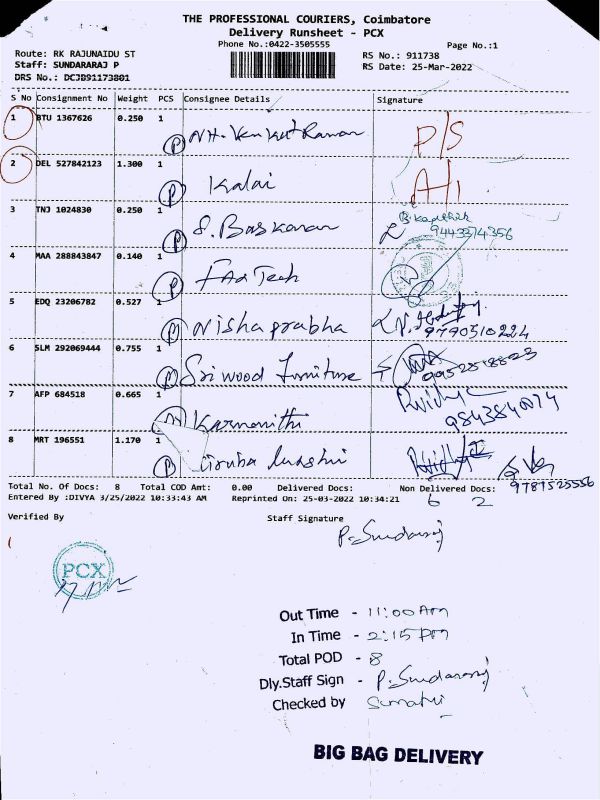 THE PROFESSIONAL COURIERS, Coimbatore
Delivery Runsheet - PCX
Phone No.:0422-3505555
Page No.:1
Route: RK RAJUNAIDU ST
RS No.: 911738
Staff: SUNDARARAJ P
RS Date: 25-Mar-2022
DRS No.: DCJB91173801
S No Consignment No Weight PCS Consignee Details Signature
1 BTU 1367626 0.250 1
P N.H. Venkat Raman P/S
2 DEL 527842123 1.300 1
P Kalai
3 TNJ 1024830 0.250 1
P S. Baskaran 9443374356
4 MAA 288843847 0.140 1
P Tech
5 EDQ 23206782 0.527 1
P Nisha prabha 9790510224
6 SLM 292069444 0.755 1
P Sri wood Furniture
7 AFP 684518 0.665 1
9843840074
8 MRT 196551 1.170 1
P
Total No. Of Docs: 8 Total COD Amt: 0.00 Delivered Docs: Non Delivered Docs:
6 2
9787525556
Entered By :DIVYA 3/25/2022 10:33:43 AM Reprinted On: 25-03-2022 10:34:21
Verified By Staff Signature
P. Sundararaj
PCX
Out Time - 11:00 Am
In Time - 2:15 pm
Total POD - 8
Dly.Staff Sign - P. Sundararaj
Checked by Sumathi
BIG BAG DELIVERY